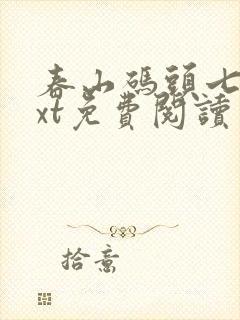 春山碼頭七
xt免費閱讀
拾意